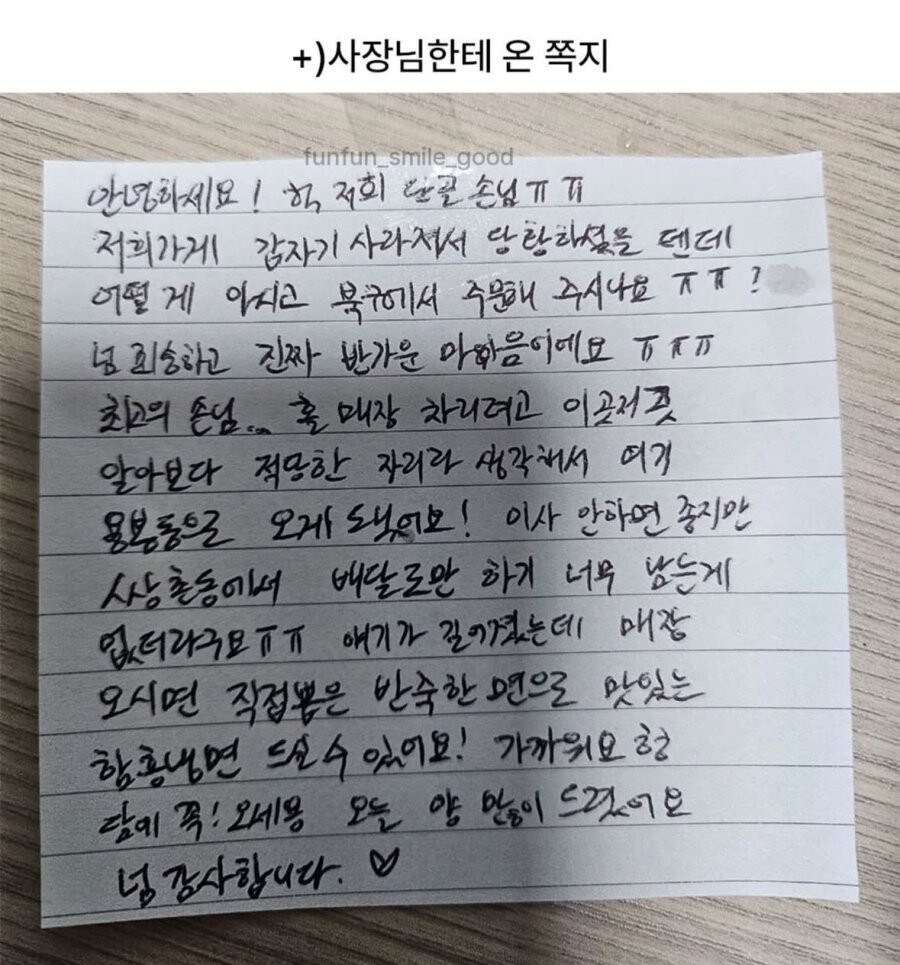 +)사장님한테 온 쪽지
funfun_smile_good
안녕하세요! 헉 저희 단골 손님ㅠㅠ
저희가게 갑자기 사라져서 당황하셨을 텐데
어떻게 아시고 북구에서 주문해 주시나요 ㅠㅠ?
넘 죄송하고 진짜 반가운 마음이에요 ㅠㅠㅠ
최고의 손님... 홀 매장 차리려고 이곳저곳
알아보다 적당한 자리라 생각해서 여기
용봉동으로 오게 됬었어요! 이사 안하면 좋지만
상촌동에서 배달로만 하기 너무 남는게
없더라구요ㅠㅠ 얘기가 길어졌는데 매장
오시면 직접뽑은 반죽한 면으로 맛있는
함흥냉면 드실 수 있어요! 가까워요 헝
담에 꼭! 오세용 오늘 양 많이 드렸어요
넘 감사합니다. ♡